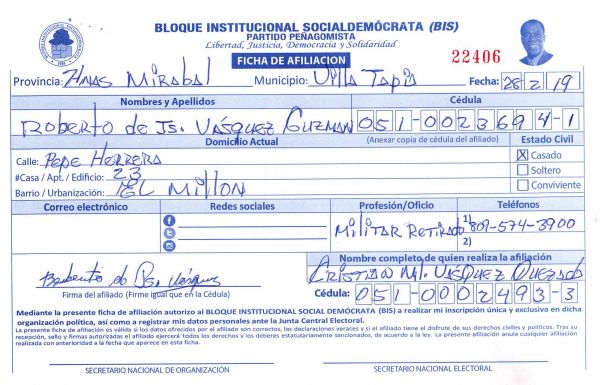 BLOQUE INSTITUCIONAL SOCIALDEMÓCRATA (BIS)
PARTIDO PEÑAGOMISTA
Libertad, Justicia, Democracia y Solidaridad
FICHA DE AFILIACIÓN
22406
Provincia: Hnas Mirabal Municipio: Villa Tapia Fecha: 28 2 19
Nombres y Apellidos Cédula
Roberto de Js. Vásquez Guzmán 051-0023694-1
Domicilio Actual (Anexar copia de cédula del afiliado) Estado Civil
Calle: Pepe Herrera X Casado
#Casa / Apt. / Edificio: 23 Soltero
Barrio / Urbanización: El Millon Conviviente
Correo electrónico Redes sociales Profesión/Oficio Teléfonos
Militar Retirado 1) 809-574-3900
2)
Nombre completo de quien realiza la afiliación
Cristian Ml. Vásquez Quezada
Firma del afiliado (Firme igual que en la Cédula) Cédula: 051-0002493-3
Mediante la presente ficha de afiliación autorizo al BLOQUE INSTITUCIONAL SOCIAL DEMÓCRATA (BIS) a realizar mi inscripción única y exclusiva en dicha
organización política, así como a registrar mis datos personales ante la Junta Central Electoral.
La presente ficha de afiliación es válida si los datos ofrecidos por el afiliado son correctos, las declaraciones veraces y si el afiliado tiene el disfrute de sus derechos civiles y políticos. Tras su
recepción, sello y firmas autorizadas el afiliado ejercerá todos los derechos y los deberes estatutariamente sancionados, de acuerdo a la ley. La presente afiliación anula cualquier afiliación
realizada con anterioridad a la fecha que aparece en esta ficha.
SECRETARIO NACIONAL DE ORGANIZACIÓN SECRETARIO NACIONAL ELECTORAL